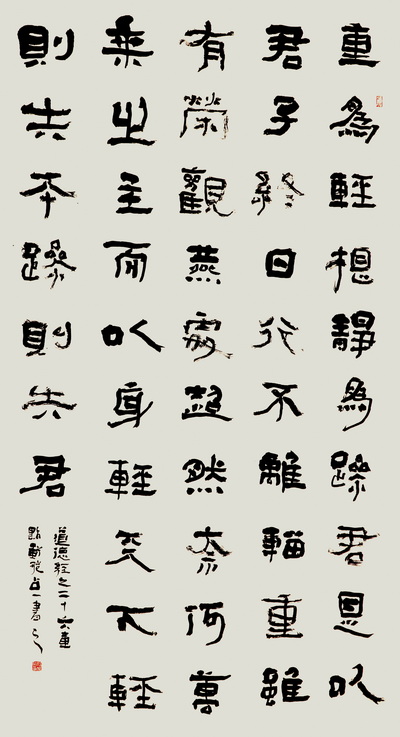 重為輕根靜為躁君是以
君子終日行不離輜重雖
有榮觀燕處超然奈何萬
乘之主而以身輕天下輕
則失本躁則失君
道德經之二十六章